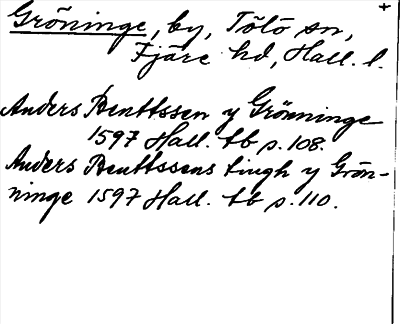 Gröninge, by, Tölö sn,
Fjäre hd, Hall. l.
Anders Benttssen y Grönninge
1597 Hall. tb p. 108.
Anders Benttssens tingh y Grön-
ninge 1597 Hall. tb p. 110.